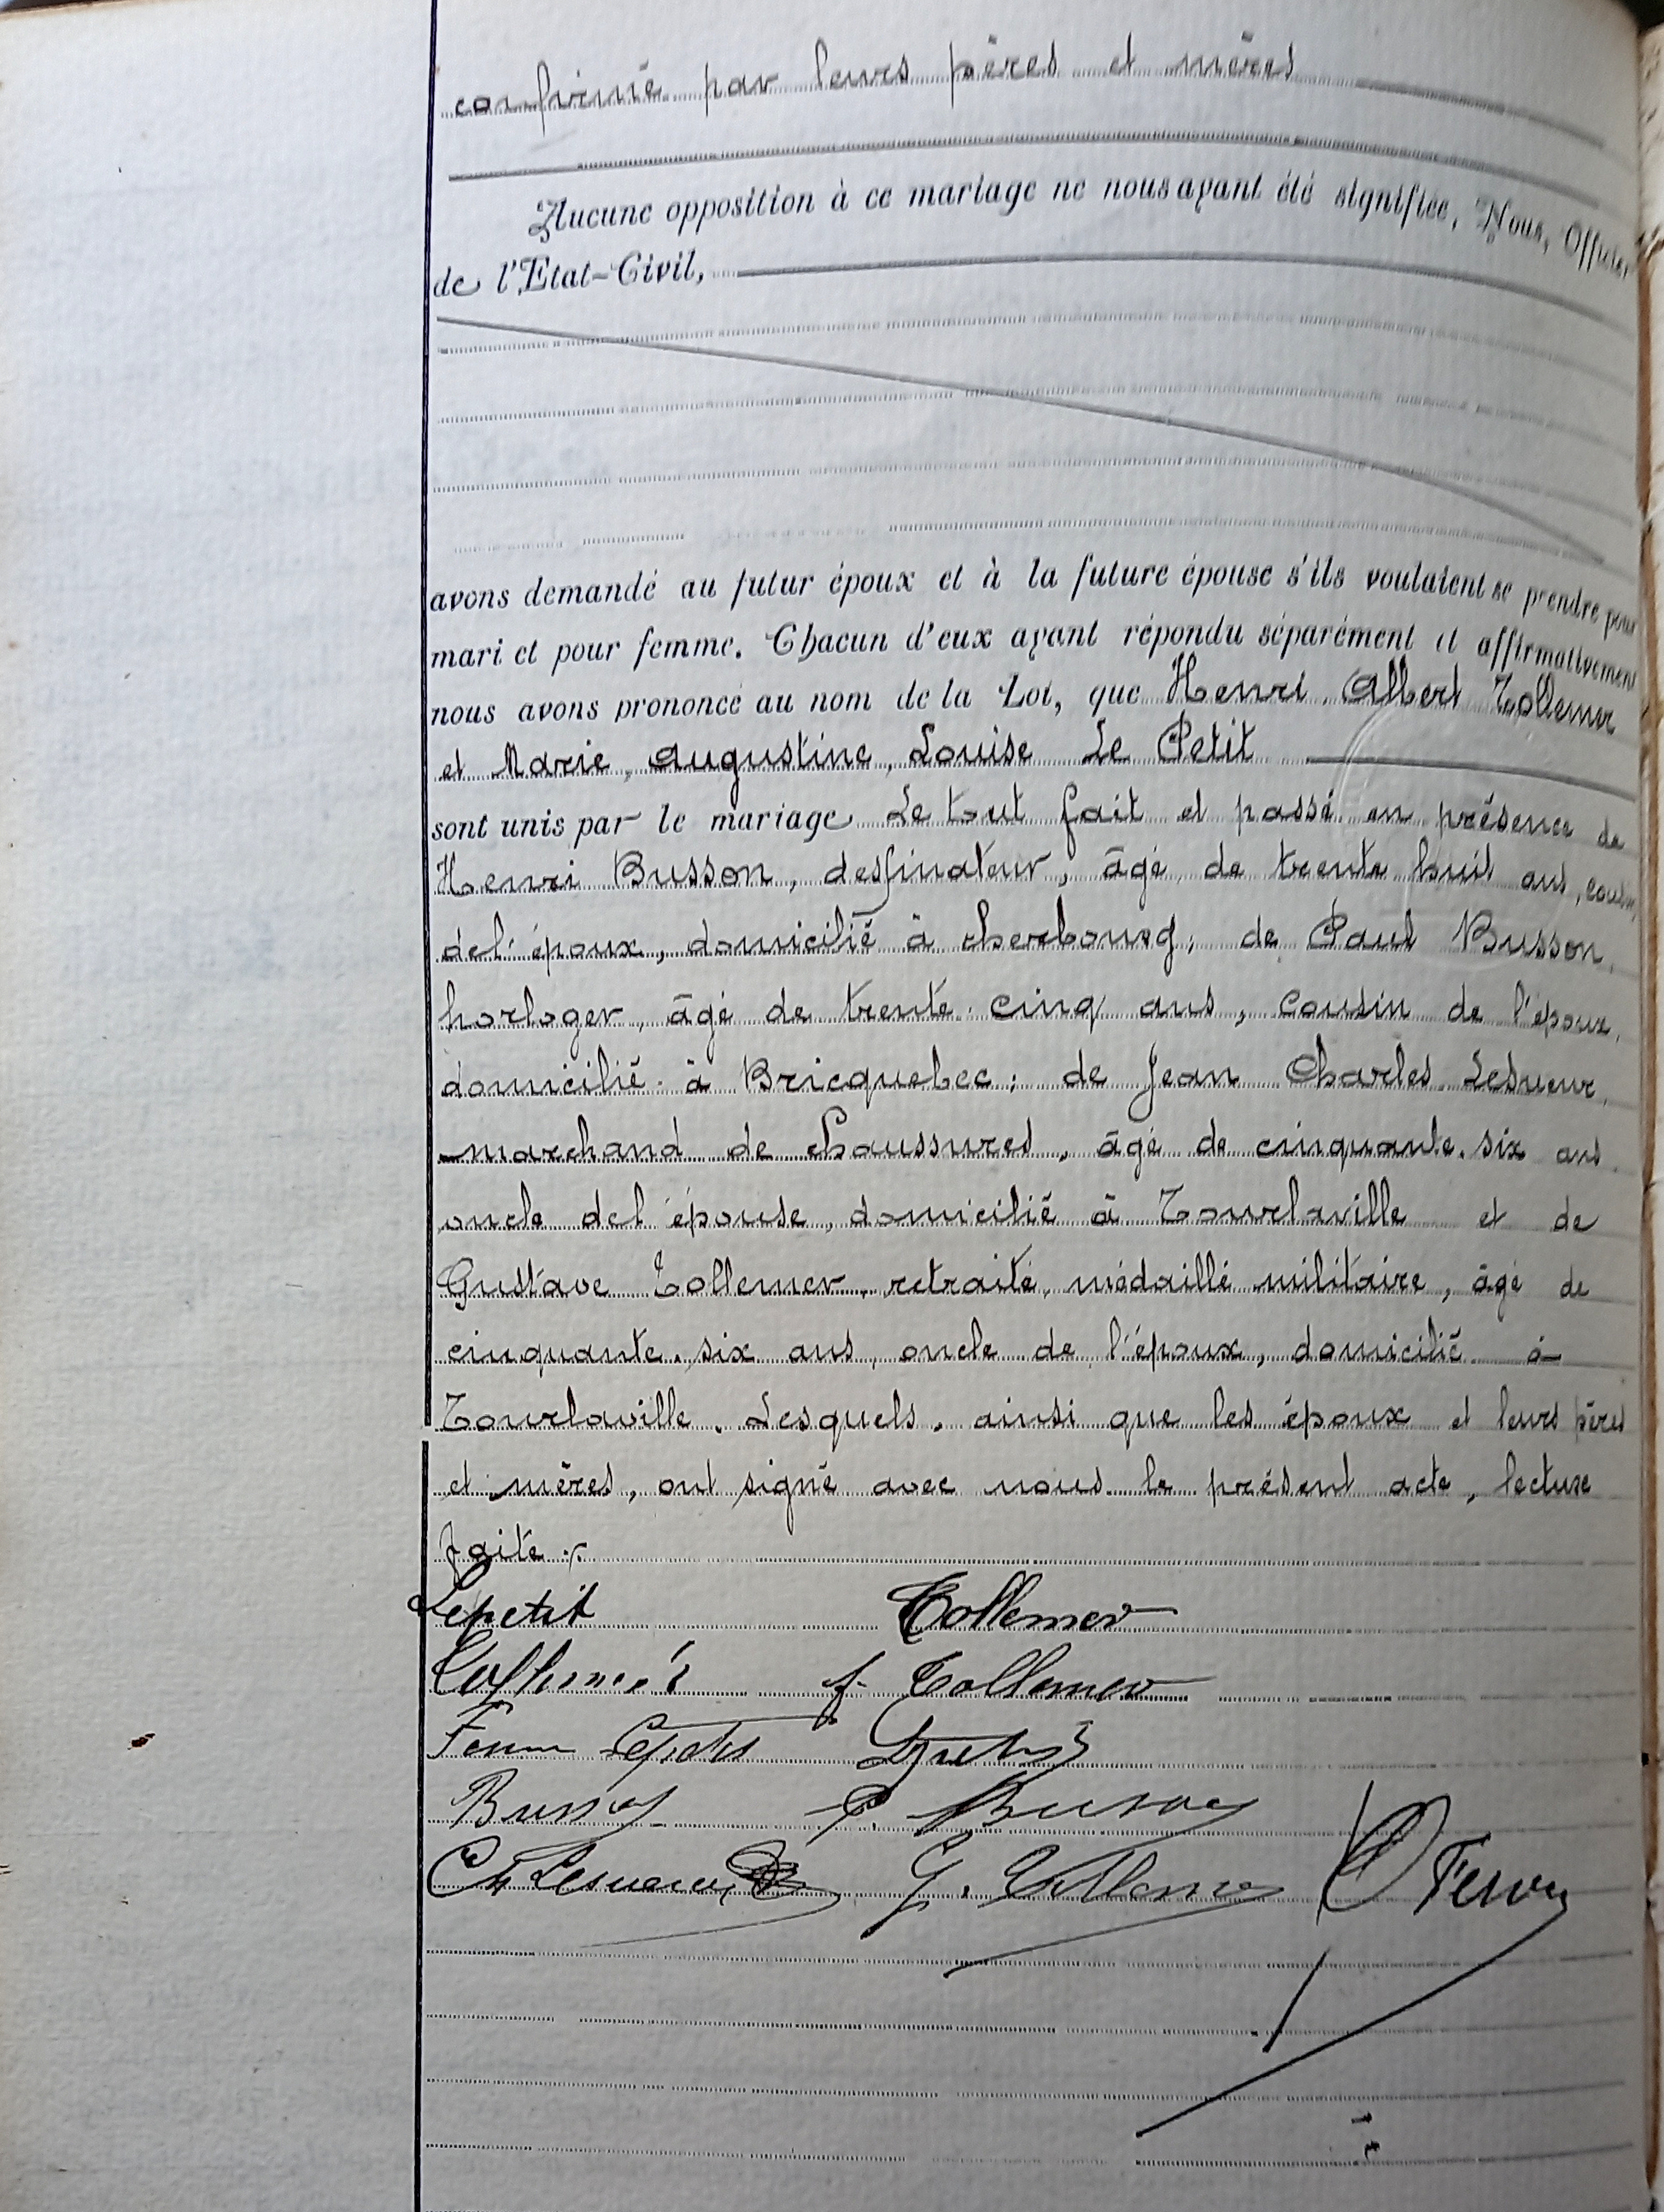 confirmé par leurs pères et mères
Aucune opposition à ce mariage ne nous ayant été signifiée, Nous, Officier
de l'Etat-Civil,
avons demandé au futur époux et à la future épouse s'ils voulaient se prendre pour
mari et pour femme. Chacun d'eux ayant répondu séparément et affirmativement
nous avons prononcé au nom de la Loi, que Henri, Albert Tollemer
et Marie, Augustine, Louise Le Petit
sont unis par le mariage Le tout fait et passé en présence de
Henri Busson, dessinateur, âgé de trente huit ans, cousin
de l'époux, domicilié à Cherbourg; de Paul Busson,
horloger, âgé de trente-cinq ans, cousin de l'époux,
domicilié à Bricquebec; de Jean Charles Lesueur,
marchand de chaussures, âgé de cinquante-six ans
oncle de l'épouse, domicilié à Tourlaville et de
Gustave Tollemer, retraité, médaillé militaire, âgé de
cinquante-six ans, oncle de l'époux, domicilié à
Tourlaville. Lesquels, ainsi que les époux et leurs pères
et mères, ont signé avec nous le présent acte, lecture
faite.
Lepetit Tollemer
Tollemer f. Tollemer
Femme Lepetit
Busson P. Busson
Ch Lesueur G. Tollemer